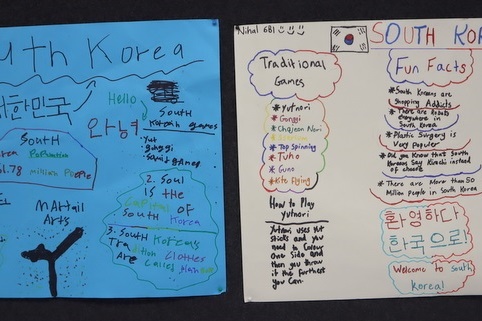 uth Korea
대한민국
Hello
안녕
South
Korean games
-Yut
-gonggi
-squid games
South
Korea Population
51.78 million People
2. Soul
IS the
capital of
South Korea
MArtail
Arts
3. South Koreans
Tradition Clothes
Are Called Hanbok
Nihal 6B1
SOUTH KOR
Traditional
Games
*Yutnori
*Gonggi
*Chajeon Nori
*Top Spinning
*Tuho
*Gune
*Kite Flying
How to Play
Yutnori
Yutnori uses Yut
Sticks and you
need to Colour
One Side and
then you throw
it the furthest
you Can.
Fun Facts
*South Koreans are
Shopping Addicts
*There are Robots
Everywhere in
South Korea
*Plastic Surgery is
Very Popular
*Did you Know that South
Koreans Say Kimchi instead
of cheese
*There are More than 50
Million people in South Korea
환영하다
한국으로!
Welcome to South
Korea!